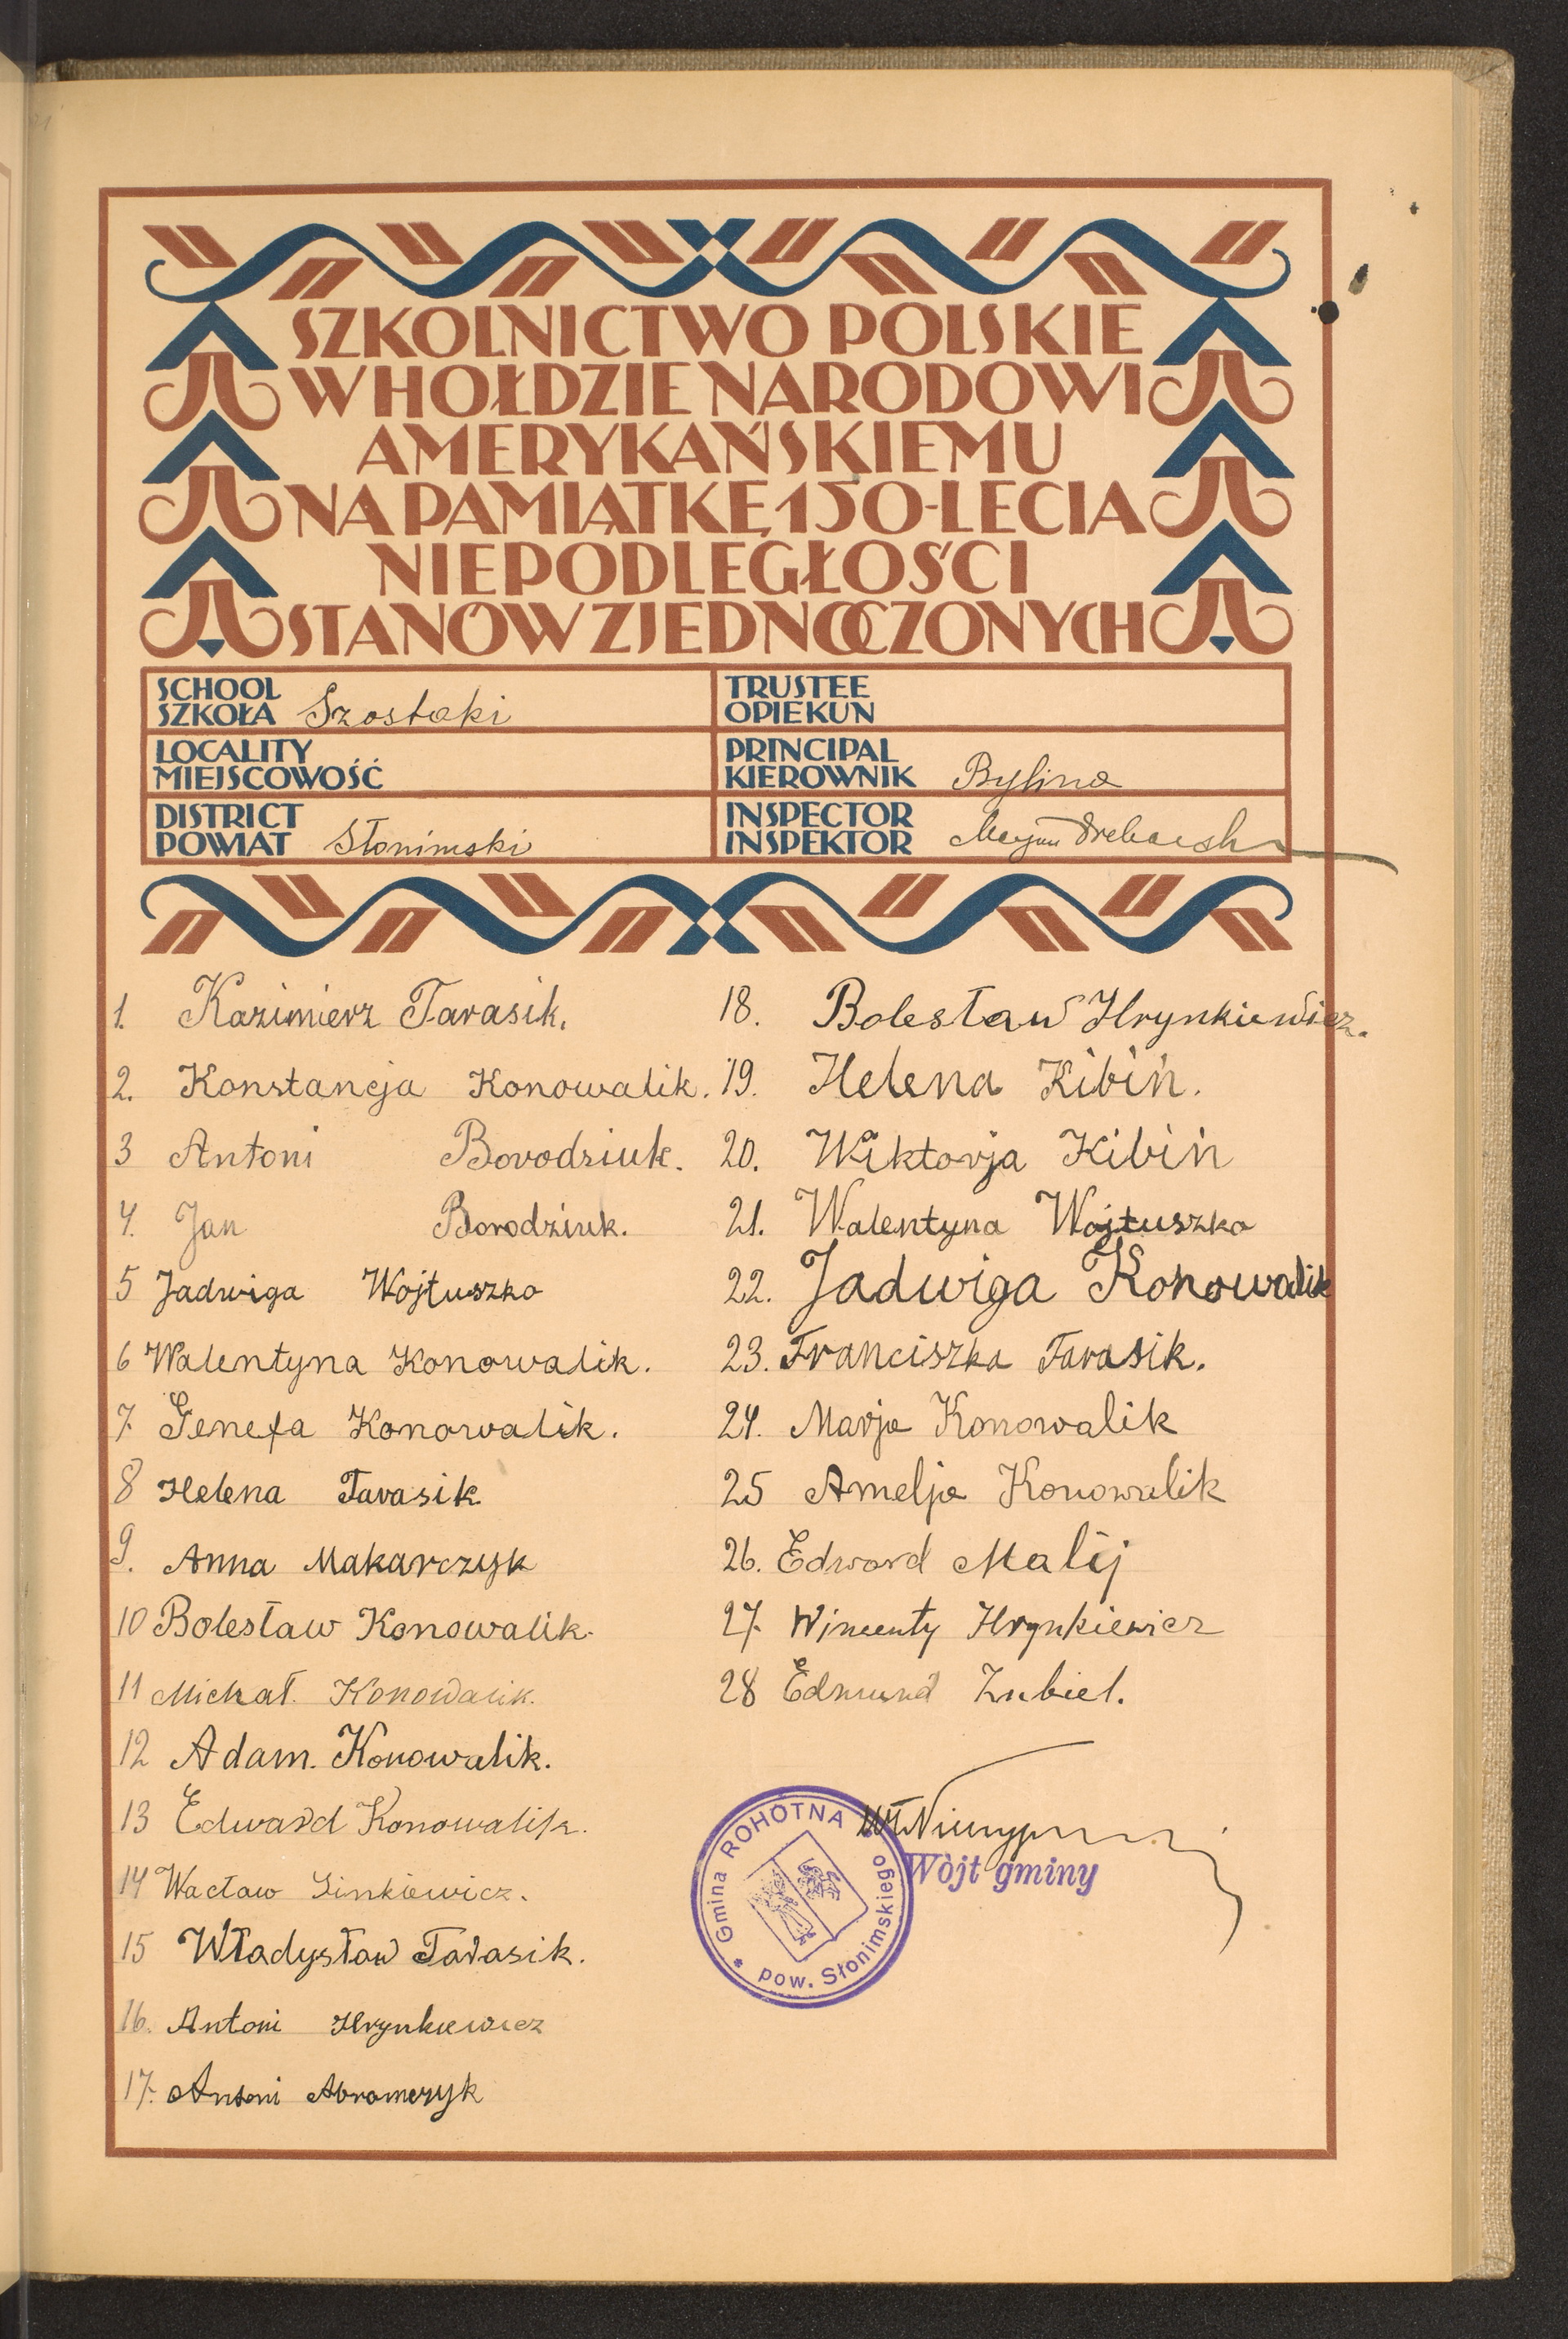 SZKOLNICTWO POLSKIE
W HOŁDZIE NARODOWI
AMERYKAŃSKIEMU
NA PAMIĄTKĘ 150-LECIA
NIEPODLEGŁOŚCI
STANÓW ZJEDNOCZONYCH
SCHOOL
SZKOŁA Szostaki
TRUSTEE
OPIEKUN
LOCALITY
MIEJSCOWOŚĆ
PRINCIPAL
KIEROWNIK Bylina
DISTRICT
POWIAT Słonimski
INSPECTOR
INSPEKTOR
1. Kazimierz Tarasik.
2. Konstancja Konowalik.
3 Antoni Borodziuk.
4. Jan Borodziuk.
5 Jadwiga Wojtuszko
6 Walentyna Konowalik.
7. Genefa Konowalik.
8 Helena Tarasik
9. Anna Makarczyk
10 Bolesław Konowalik.
11 Michał. Konowalik.
12 Adam. Konowalik.
13 Edward Konowalik.
14 Wacław Sinkiewicz.
15 Władysław Tarasik.
16. Antoni Hrynkiewicz
17. Antoni Abramczyk
18. Bolesław Hrynkiewicz.
19. Helena Kibiń.
20. Wiktorja Kibiń
21. Walentyna Wojtuszko
22. Jadwiga Konowalik
23. Franciszka Tarasik.
24. Marja Konowalik
25 Amelja Konowalik
26. Edward Malij
27. Wincenty Hrynkiewicz
28 Edmund Zubiel.
Gmina ROHOTNA
pow. Słonimskiego
Wòjt gminy